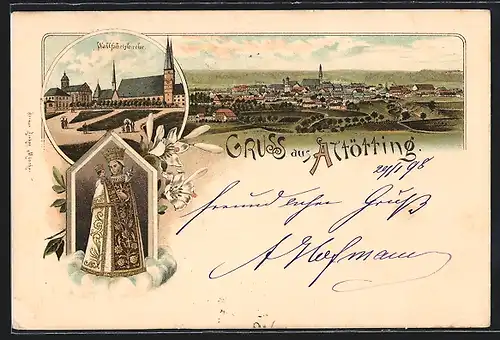 Wallfahrtskirche
GRUSS aus ALTÖTTING.
29/1 98
freundlichen Gruß
A Hofmann